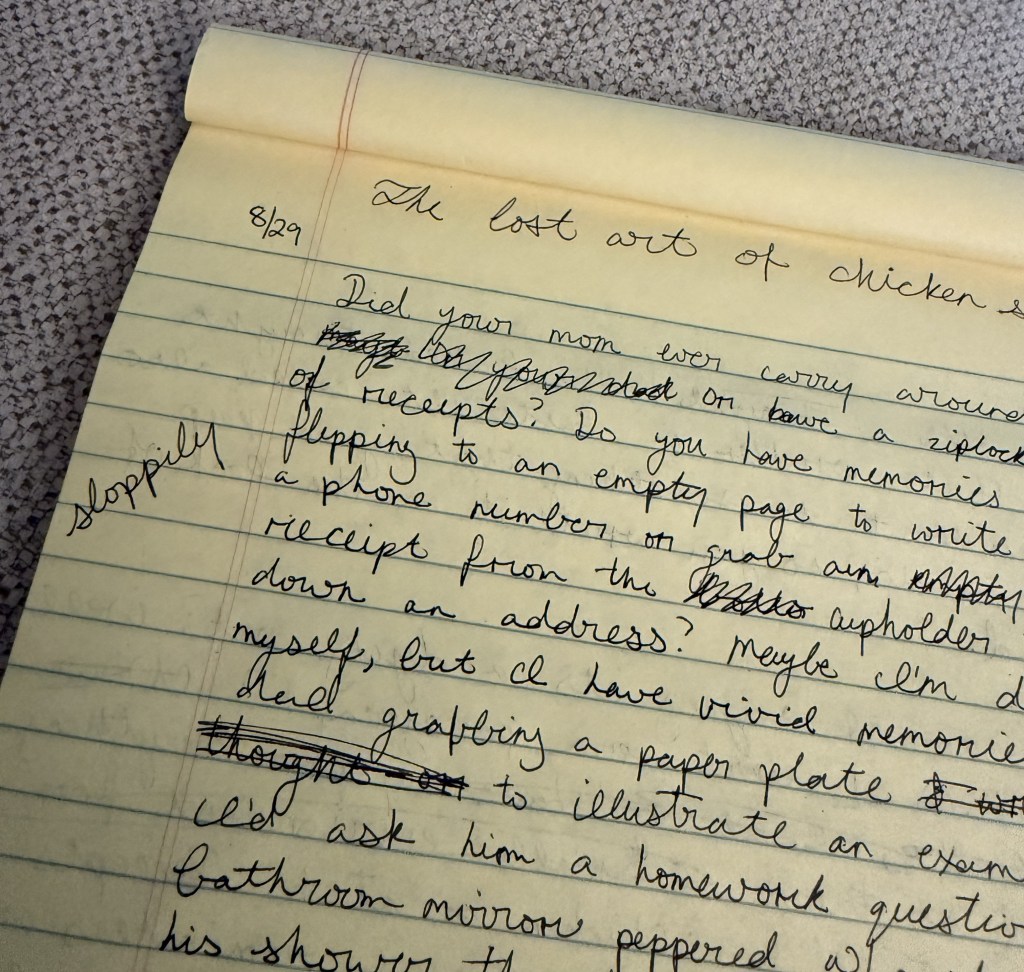 The lost art of chicken s
8/29
Did your mom ever carry around
or have a ziplock
of receipts? Do you have memories
flipping to an empty page to write
sloppily
a phone number or grab an empty
receipt from the cupholder
down an address? Maybe I'm d
myself, but I have vivid memorie
dad grabbing a paper plate
thought or to illustrate an exam
I'd ask him a homework questio
bathroom mirror peppered w
his shower